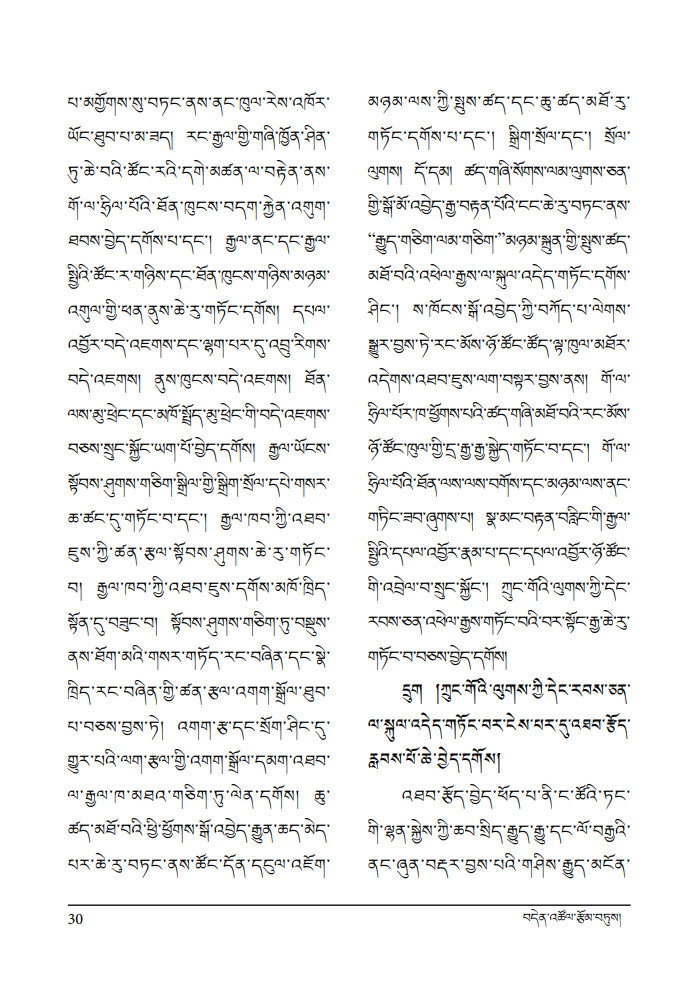 པ་མགྱོགས་སུ་བཏང་ནས་ནང་ཁུལ་རེས་འཁོར་
ཡོང་ཐུབ་པ་མ་ཟད། རང་རྒྱལ་གྱི་གཞི་ཁྱོན་ཤིན་
ཏུ་ཆེ་བའི་ཚོང་རའི་དགེ་མཚན་ལ་བརྟེན་ནས་
གོ་ལ་ཧྲིལ་པོའི་ཐོན་ཁུངས་བདག་རྐྱེན་འགུག་
ཐབས་བྱེད་དགོས་པ་དང་། རྒྱལ་ནང་དང་རྒྱལ་
སྤྱིའི་ཚོང་ར་གཉིས་དང་ཐོན་ཁུངས་གཉིས་མཉམ་
འགུལ་གྱི་ཕན་ནུས་ཆེ་རུ་གཏོང་དགོས། དཔལ་
འབྱོར་བདེ་འཇགས་དང་ལྷག་པར་དུ་འབྲུ་རིགས་
བདེ་འཇགས། ནུས་ཁུངས་བདེ་འཇགས། ཐོན་
ལས་མུ་ཕྲེང་དང་མཁོ་སྤྲོད་མུ་ཕྲེང་གི་བདེ་འཇགས་
བཅས་སྲུང་སྐྱོང་ཡག་པོ་བྱེད་དགོས། རྒྱལ་ཡོངས་
སྟོབས་ཤུགས་གཅིག་སྒྲིལ་གྱི་སྒྲིག་སྲོལ་དཔེ་གསར་
ཆ་ཚང་དུ་གཏོང་བ་དང་། རྒྱལ་ཁབ་ཀྱི་འཐབ་
ཇུས་ཀྱི་ཚན་རྩལ་སྟོབས་ཤུགས་ཆེ་རུ་གཏོང་
བ། རྒྱལ་ཁབ་ཀྱི་འཐབ་ཇུས་དགོས་མཁོ་ཁྲིད་
སྟོན་དུ་བཟུང་བ། སྟོབས་ཤུགས་གཅིག་ཏུ་བསྡུས་
ནས་ཐོག་མའི་གསར་གཏོད་རང་བཞིན་དང་སྣེ་
ཁྲིད་རང་བཞིན་གྱི་ཚན་རྩལ་འགག་སྒྲོལ་ཐུབ་
པ་བཅས་བྱས་ཏེ། འགག་རྩ་དང་སྲོག་ཤིང་དུ་
གྱུར་པའི་ལག་རྩལ་གྱི་འགག་སྒྲོལ་དམག་འཐབ་
ལ་རྒྱལ་ཁ་མཐའ་གཅིག་ཏུ་ལེན་དགོས། ཆུ་
ཚད་མཐོ་བའི་ཕྱི་ཕྱོགས་སྒོ་འབྱེད་རྒྱུན་ཆད་མེད་
པར་ཆེ་རུ་བཏང་ནས་ཚོང་དོན་དངུལ་འཇོག་
མཉམ་ལས་ཀྱི་སྤུས་ཚད་དང་ཆུ་ཚད་མཐོ་རུ་
གཏོང་དགོས་པ་དང་། སྒྲིག་སྲོལ་དང་། སྲོལ་
ལུགས། དོ་དམ། ཚད་གཞི་སོགས་ལམ་ལུགས་ཅན་
གྱི་སྒོ་མོ་འབྱེད་རྒྱ་བརྟན་པོའི་ངང་ཆེ་རུ་བཏང་ནས་
“རྒྱུད་གཅིག་ལམ་གཅིག་”མཉམ་སྐྲུན་གྱི་སྤུས་ཚད་
མཐོ་བའི་འཕེལ་རྒྱས་ལ་སྐུལ་འདེད་གཏོང་དགོས་
ཤིང་། ས་ཁོངས་སྒོ་འབྱེད་ཀྱི་བཀོད་པ་ལེགས་
སྒྱུར་བྱས་ཏེ་རང་མོས་ཉོ་ཚོང་ཚོད་ལྟ་ཁུལ་མཐོར་
འདེགས་འཐབ་ཇུས་ལག་བསྟར་བྱས་ནས། གོ་ལ་
ཧྲིལ་པོར་ཁ་ཕྱོགས་པའི་ཚད་གཞི་མཐོ་བའི་རང་མོས་
ཉོ་ཚོང་ཁུལ་གྱི་དྲ་རྒྱ་རྒྱ་སྐྱེད་གཏོང་བ་དང་། གོ་ལ་
ཧྲིལ་པོའི་ཐོན་ལས་ལས་བགོས་དང་མཉམ་ལས་ནང་
གཏིང་ཟབ་ཞུགས་པ། སྣ་མང་བརྟན་བརླིང་གི་རྒྱལ་
སྤྱིའི་དཔལ་འབྱོར་རྣམ་པ་དང་དཔལ་འབྱོར་ཉོ་ཚོང་
གི་འབྲེལ་བ་སྲུང་སྐྱོང་། ཀྲུང་གོའི་ལུགས་ཀྱི་དེང་
རབས་ཅན་འཕེལ་རྒྱས་གཏོང་བའི་བར་སྟོང་རྒྱ་ཆེ་རུ་
གཏོང་བ་བཅས་བྱེད་དགོས།
དྲུག །ཀྲུང་གོའི་ལུགས་ཀྱི་དེང་རབས་ཅན་
ལ་སྐུལ་འདེད་གཏོང་བར་ངེས་པར་དུ་འཐབ་རྩོད་
རླབས་པོ་ཆེ་བྱེད་དགོས།
འཐབ་རྩོད་བྱེད་ཕོད་པ་ནི་ང་ཚོའི་ཏང་
གི་ལྷན་སྐྱེས་ཀྱི་ཆབ་སྲིད་རྒྱུད་རྒྱུ་དང་ལོ་བརྒྱའི་
ནང་ཞུན་བརྡར་བྱས་པའི་གཤིས་རྒྱུད་མངོན་
30
བདེན་འཚོལ་རྩོམ་བཏུས།